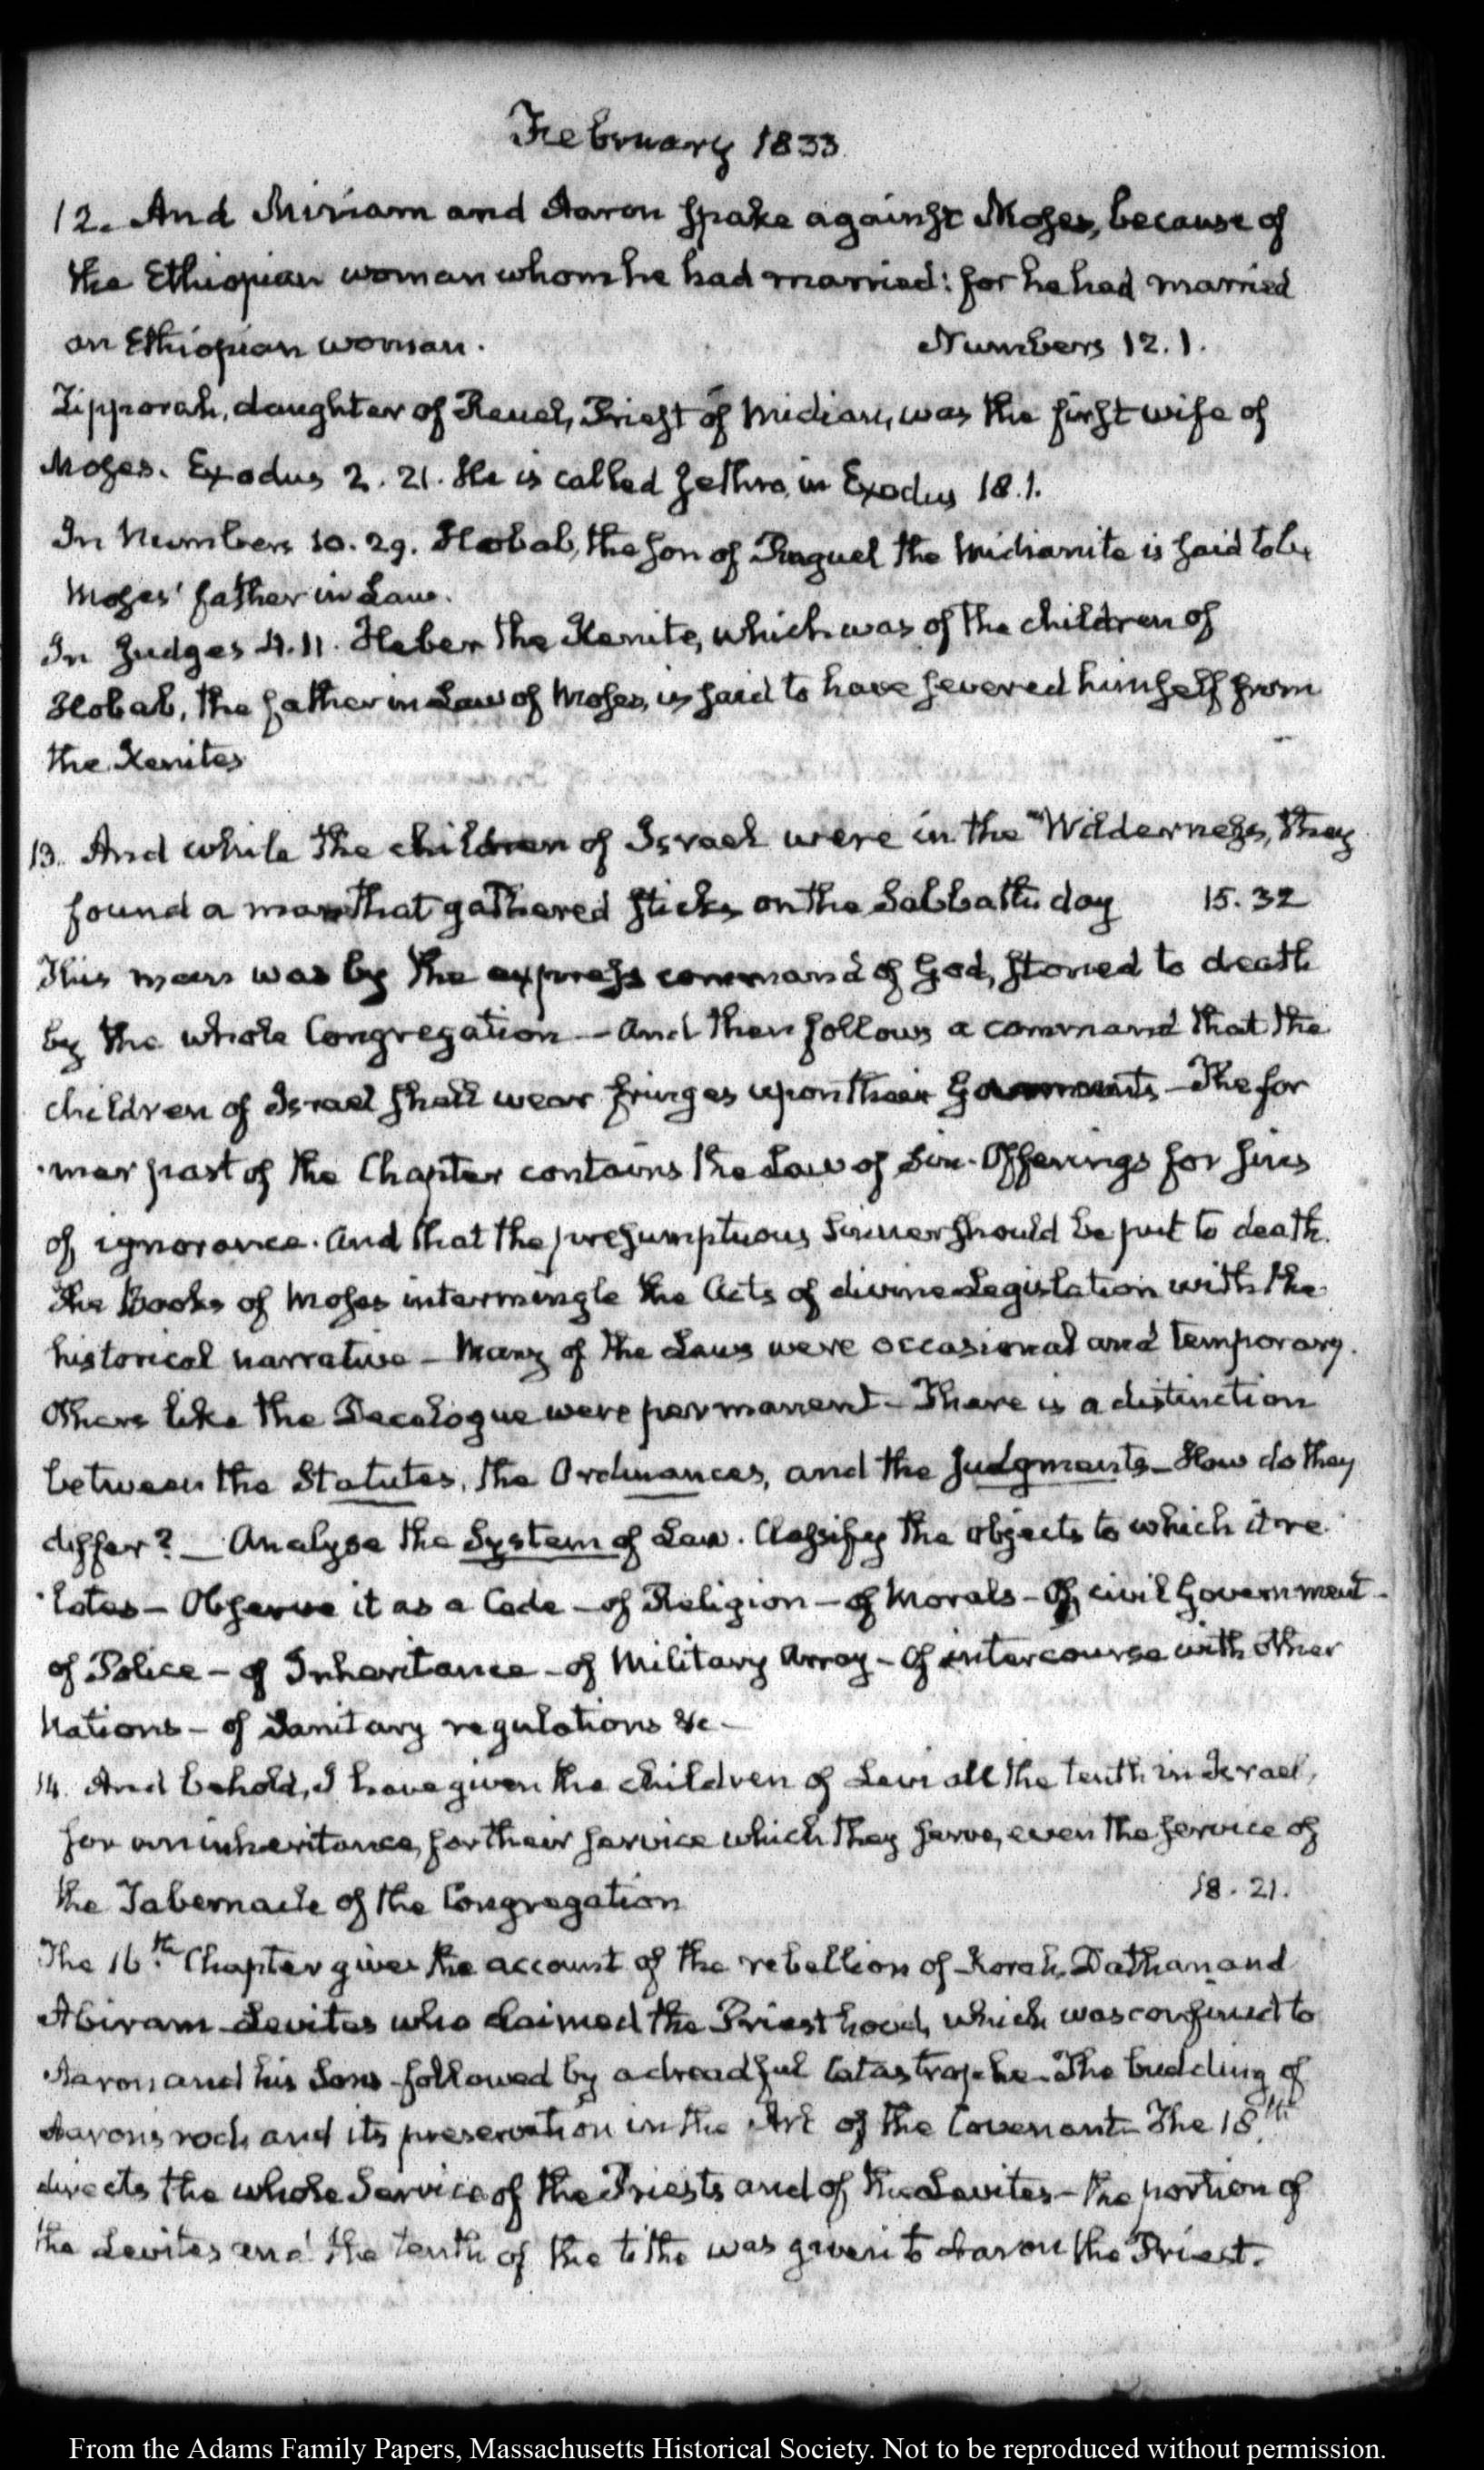 February 1833
12. And Miriam and Aaron spake against Moses, because of
the Ethiopian woman whom he had married: for he had married
an Ethiopian woman. Numbers 12.1.
Zipporah, daughter of Reuel, Priest of Midian, was the first wife of
Moses. Exodus 2.21. He is called Jethro, in Exodus 18.1.
In Numbers 10.29. Hobab, the son of Raguel the Midianite is said to be
Moses' father in Law.
In Judges 4.11. Heber the Kenite, which was of the children of
Hobab, the father in Law of Moses, is said to have severed himself from
the Kenites
13. And while the children of Israel were in the Wilderness, they
found a man that gathered sticks on the Sabbath day 15.32
This man was by the express command of God, stoned to death
by the whole Congregation — And then follows a command that the
children of Israel shall wear fringes upon their Garments — The for
-mer part of the Chapter contains the Law of Sin-Offerings for sins
of ignorance. And that the presumptuous Sinner should be put to death.
The Books of Moses intermingle the Acts of divine Legislation with the
historical narrative — Many of the Laws were occasional and temporary.
Others like the Decalogue were permanent — There is a distinction
between the Statutes, the Ordinances, and the Judgments — How do they
differ? — Analyse the System of Law. Classify the objects to which it re
-lates — Observe it as a Code — of Religion — of Morals — Of civil Government —
of Police — of Inheritance — of Military Array — Of intercourse with other
Nations — of Sanitary regulations &c —
14. And behold, I have given the children of Levi all the tenth in Israel,
for an inheritance, for their service which they serve, even the service of
the Tabernacle of the Congregation 18.21.
The 16.th Chapter gives the account of the rebellion of Korah, Dathan and
Abiram Levites who claimed the Priesthood, which was confined to
Aaron and his Sons — followed by a dreadful Catastrophe — The budding of
Aaron's rod, and its preservation in the Ark of the Covenant — The 18.th
directs the whole Service of the Priests and of the Levites — the portion of
the Levites and the tenth of the tithe was given to Aaron the Priest.
From the Adams Family Papers, Massachusetts Historical Society. Not to be reproduced without permission.